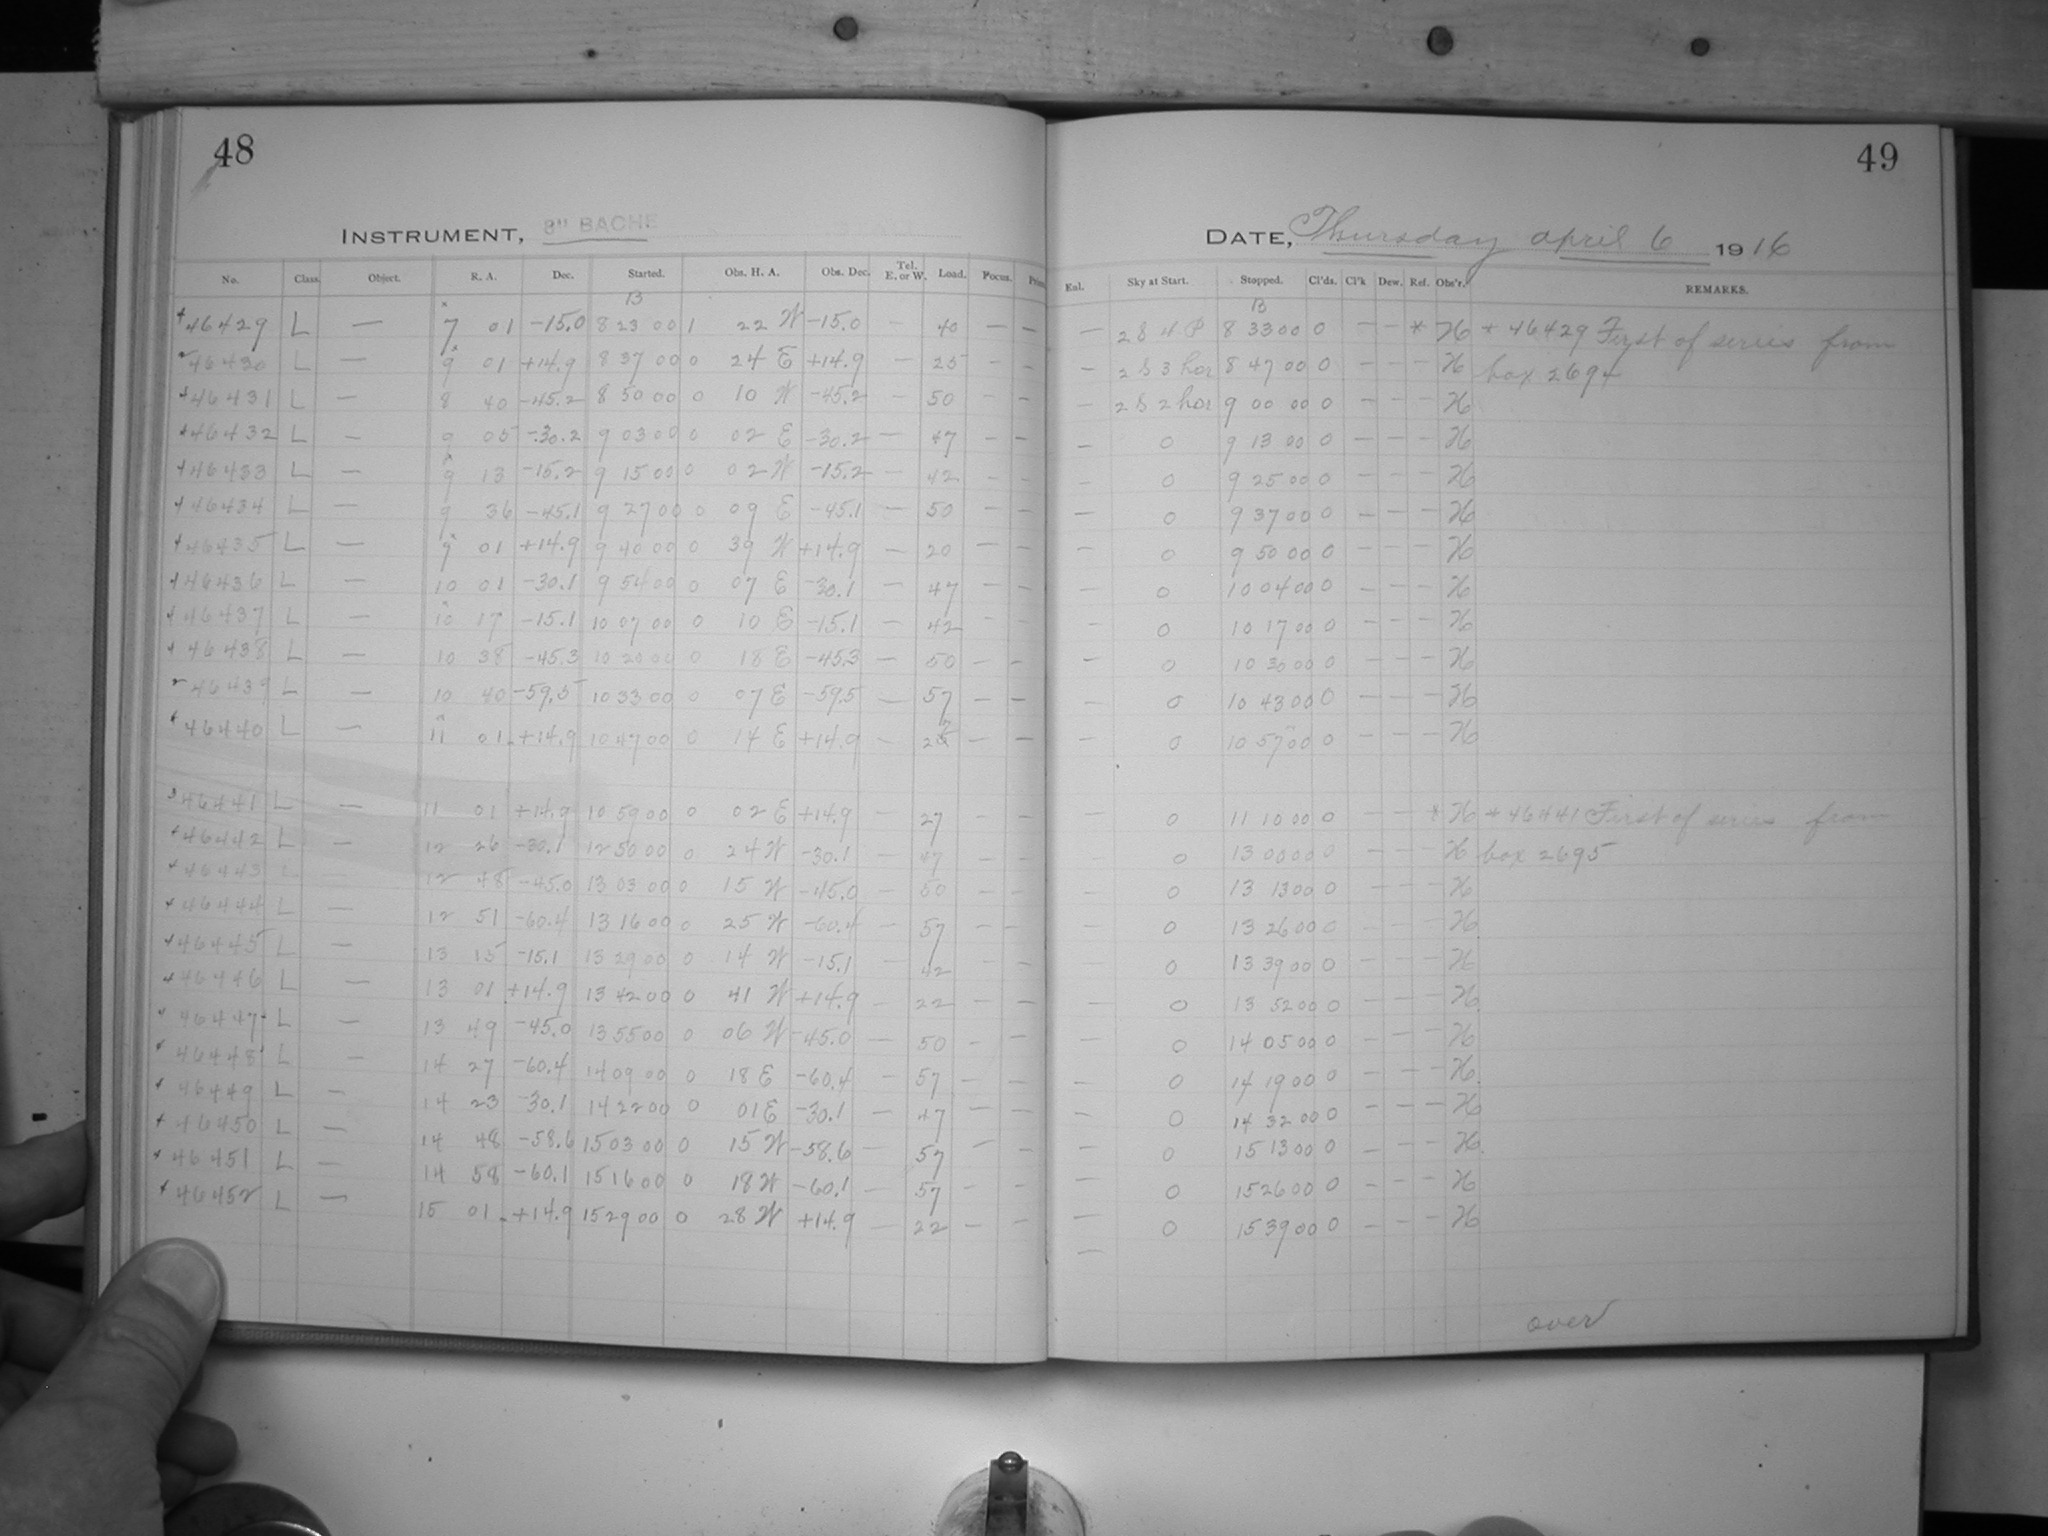 48
INSTRUMENT, 8" BACHE
No. Class. Object. R. A. Dec. Started. Obs. H. A. Obs. Dec. Tel. E. or W. Load. Focus.
B
46429 L — 7 01 -15.0 8 23 00 1 22 W -15.0 — 40 — —
46430 L — 9 01 +14.9 8 37 00 0 24 E +14.9 — 25 — —
46431 L — 8 40 -45.2 8 50 00 0 10 W -45.2 — 50 — —
46432 L — 9 05 -30.2 9 03 00 0 02 E -30.2 — 47 — —
46433 L — 9 13 -15.2 9 15 00 0 02 W -15.2 — 42 — —
46434 L — 9 36 -45.1 9 27 00 0 09 E -45.1 — 50 — —
46435 L — 9 01 +14.9 9 40 00 0 39 W +14.9 — 20 — —
46436 L — 10 01 -30.1 9 54 00 0 07 E -30.1 — 47 — —
46437 L — 10 17 -15.1 10 07 00 0 10 E -15.1 — 42 — —
46438 L — 10 38 -45.3 10 20 00 0 18 E -45.3 — 50 — —
46439 L — 10 40 -59.5 10 33 00 0 07 E -59.5 — 57 — —
46440 L — 11 01 +14.9 10 47 00 0 14 E +14.9 — — —
46441 L — 11 01 +14.9 10 59 00 0 02 E +14.9 — 27 — —
46442 L — 12 26 -30.1 12 50 00 0 24 W -30.1 — 47 — —
46443 L — 12 48 -45.0 13 03 00 0 15 W -45.0 — 50 — —
46444 L — 12 51 -60.4 13 16 00 0 25 W -60.4 — 57 — —
46445 L — 13 15 -15.1 13 29 00 0 14 W -15.1 — 42 — —
46446 L — 13 01 +14.9 13 42 00 0 41 W +14.9 — 22 — —
46447 L — 13 49 -45.0 13 55 00 0 06 W -45.0 — 50 — —
46448 L — 14 27 -60.4 14 09 00 0 18 E -60.4 — 57 — —
46449 L — 14 23 -30.1 14 22 00 0 01 E -30.1 — 47 — —
46450 L — 14 48 -58.6 15 03 00 0 15 W -58.6 — 57 — —
46451 L — 14 58 -60.1 15 16 00 0 18 W -60.1 — 57 — —
46452 L — 15 01 +14.9 15 29 00 0 28 W +14.9 — 22 — —
49
DATE, Thursday april 6 1916
Enl. Sky at Start. Stopped. Cl'ds. Cl'k Dew. Ref. Obs'r. REMARKS.
B
— 2 S 4 P 8 33 00 0 — — * H * 46429 First of series from
— 2 S 3 hor 8 47 00 0 — — — H box 2694
— 2 S 2 hor 9 00 00 0 — — — H
— 0 9 13 00 0 — — — H
— 0 9 25 00 0 — — — H
— 0 9 37 00 0 — — — H
— 0 9 50 00 0 — — — H
— 0 10 04 00 0 — — — H
— 0 10 17 00 0 — — — H
— 0 10 30 00 0 — — — H
— 0 10 43 00 0 — — — H
— 0 10 57 00 0 — — — H
— 0 11 10 00 0 — — * H * 46441 First of series from
— 0 13 00 00 0 — — — H box 2695
— 0 13 13 00 0 — — — H
— 0 13 26 00 0 — — — H
— 0 13 39 00 0 — — — H
— 0 13 52 00 0 — — — H
— 0 14 05 00 0 — — — H
— 0 14 19 00 0 — — — H
— 0 14 32 00 0 — — — H
— 0 15 13 00 0 — — — H
— 0 15 26 00 0 — — — H
— 0 15 39 00 0 — — — H
over